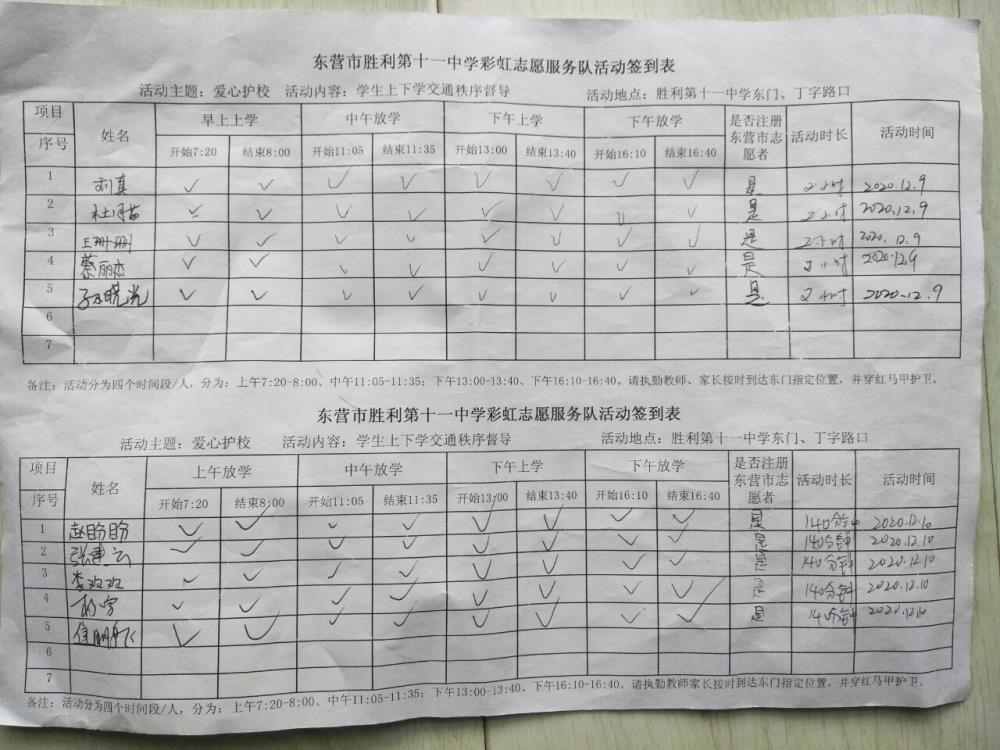 东营市胜利第十一中学彩虹志愿服务队活动签到表
活动主题：爱心护校 活动内容：学生上下学交通秩序督导 活动地点：胜利第十一中学东门、丁字路口
项目 序号 姓名 早上上学 中午放学 下午上学 下午放学 是否注册东营市志愿者 活动时长 活动时间
开始7:20 结束8:00 开始11:05 结束11:35 开始13:00 结束13:40 开始16:10 结束16:40
1 刘真 ✓ ✓ ✓ ✓ ✓ ✓ ✓ ✓ 是 2小时 2020.12.9
2 杜 ✓ ✓ ✓ ✓ ✓ ✓ ✓ ✓ 是 2小时 2020.12.9
3 王珊珊 ✓ ✓ ✓ ✓ ✓ ✓ ✓ ✓ 是 2小时 2020.12.9
4 蔡丽杰 ✓ ✓ ✓ ✓ ✓ ✓ ✓ ✓ 是 2小时 2020.12.9
5 孙晓光 ✓ ✓ ✓ ✓ ✓ ✓ ✓ ✓ 是 2小时 2020.12.9
6
7
备注：活动分为四个时间段/人，分为：上午7:20-8:00、中午11:05-11:35；下午13:00-13:40、下午16:10-16:40。请执勤教师、家长按时到达东门指定位置，并穿红马甲护卫。
东营市胜利第十一中学彩虹志愿服务队活动签到表
活动主题：爱心护校 活动内容：学生上下学交通秩序督导 活动地点：胜利第十一中学东门、丁字路口
项目 序号 姓名 上午放学 中午放学 下午上学 下午放学 是否注册东营市志愿者 活动时长 活动时间
开始7:20 结束8:00 开始11:05 结束11:35 开始13:00 结束13:40 开始16:10 结束16:40
1 赵盼盼 ✓ ✓ ✓ ✓ ✓ ✓ ✓ ✓ 是 140分钟 2020.12.10
2 张建云 ✓ ✓ ✓ ✓ ✓ ✓ ✓ ✓ 是 140分钟 2020.12.10
3 李双双 ✓ ✓ ✓ ✓ ✓ ✓ ✓ ✓ 是 140分钟 2020.12.10
4 ✓ ✓ ✓ ✓ ✓ ✓ ✓ ✓ 是 140分钟 2020.12.10
5 ✓ ✓ ✓ ✓ ✓ ✓ ✓ ✓ 是 140分钟 2020.12.10
6
7
备注：活动分为四个时间段/人，分为：上午7:20-8:00、中午11:05-11:35；下午13:00-13:40、下午16:10-16:40。请执勤教师家长按时到达东门指定位置，并穿马甲护卫。